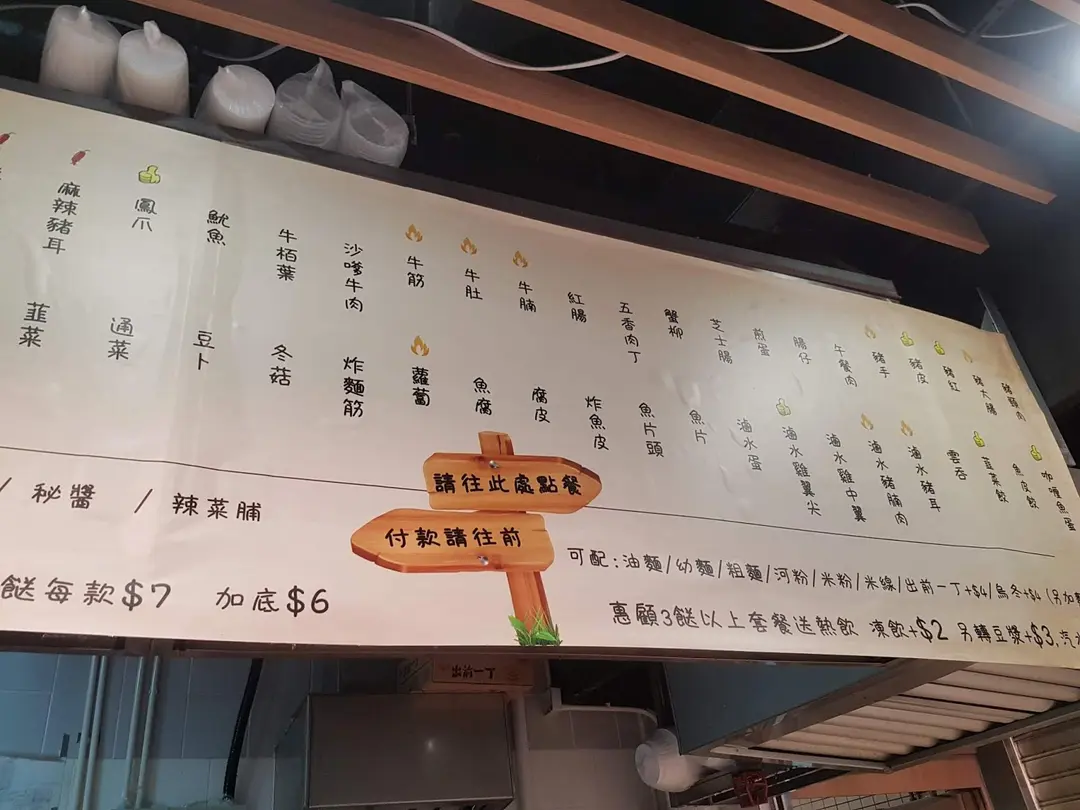 麻辣豬耳
鳳爪
魷魚
牛栢葉
沙嗲牛肉
牛筋
牛肚
牛腩
紅腸
五香肉丁
蟹柳
芝士腸
煎蛋
腸仔
午餐肉
豬手
豬皮
豬紅
豬大腸
豬頸肉
韮菜
通菜
豆卜
冬菇
炸麵筋
蘿蔔
魚腐
腐皮
炸魚皮
魚片頭
魚片
滷水蛋
滷水雞翼尖
滷水雞中翼
滷水豬腩肉
滷水豬耳
雲吞
韮菜餃
魚皮餃
咖喱魚蛋
/ 秘醬 / 辣菜脯
餸每款$7 加底$6
請往此處點餐
付款請往前
可配:油麵/幼麵/粗麵/河粉/米粉/米線/出前一丁+$4/烏冬+$4
惠顧3餸以上套餐送熱飲 凍飲+$2 另轉豆漿+$3,汽
出前一丁